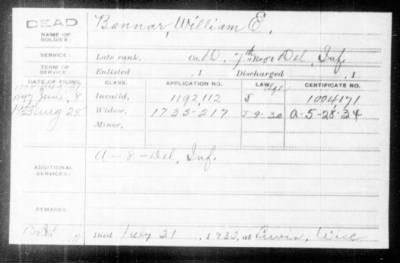 DEAD
NAME OF SOLDIER: Bennar, William E.
SERVICE: Late rank, Co. D, 7th Reg't Del. Inf.
TERM OF SERVICE: Enlisted , 1 Discharged , 1
DATE OF FILING. CLASS. APPLICATION NO. LAW. CERTIFICATE NO.
June, 8 Invalid, 1192,112 1004171
Aug 28 Widow, 1733-217 A-5-28-34
Minor,
ADDITIONAL SERVICES: A - 8 - Del. Inf.
REMARKS:
Died 21, 1933, at